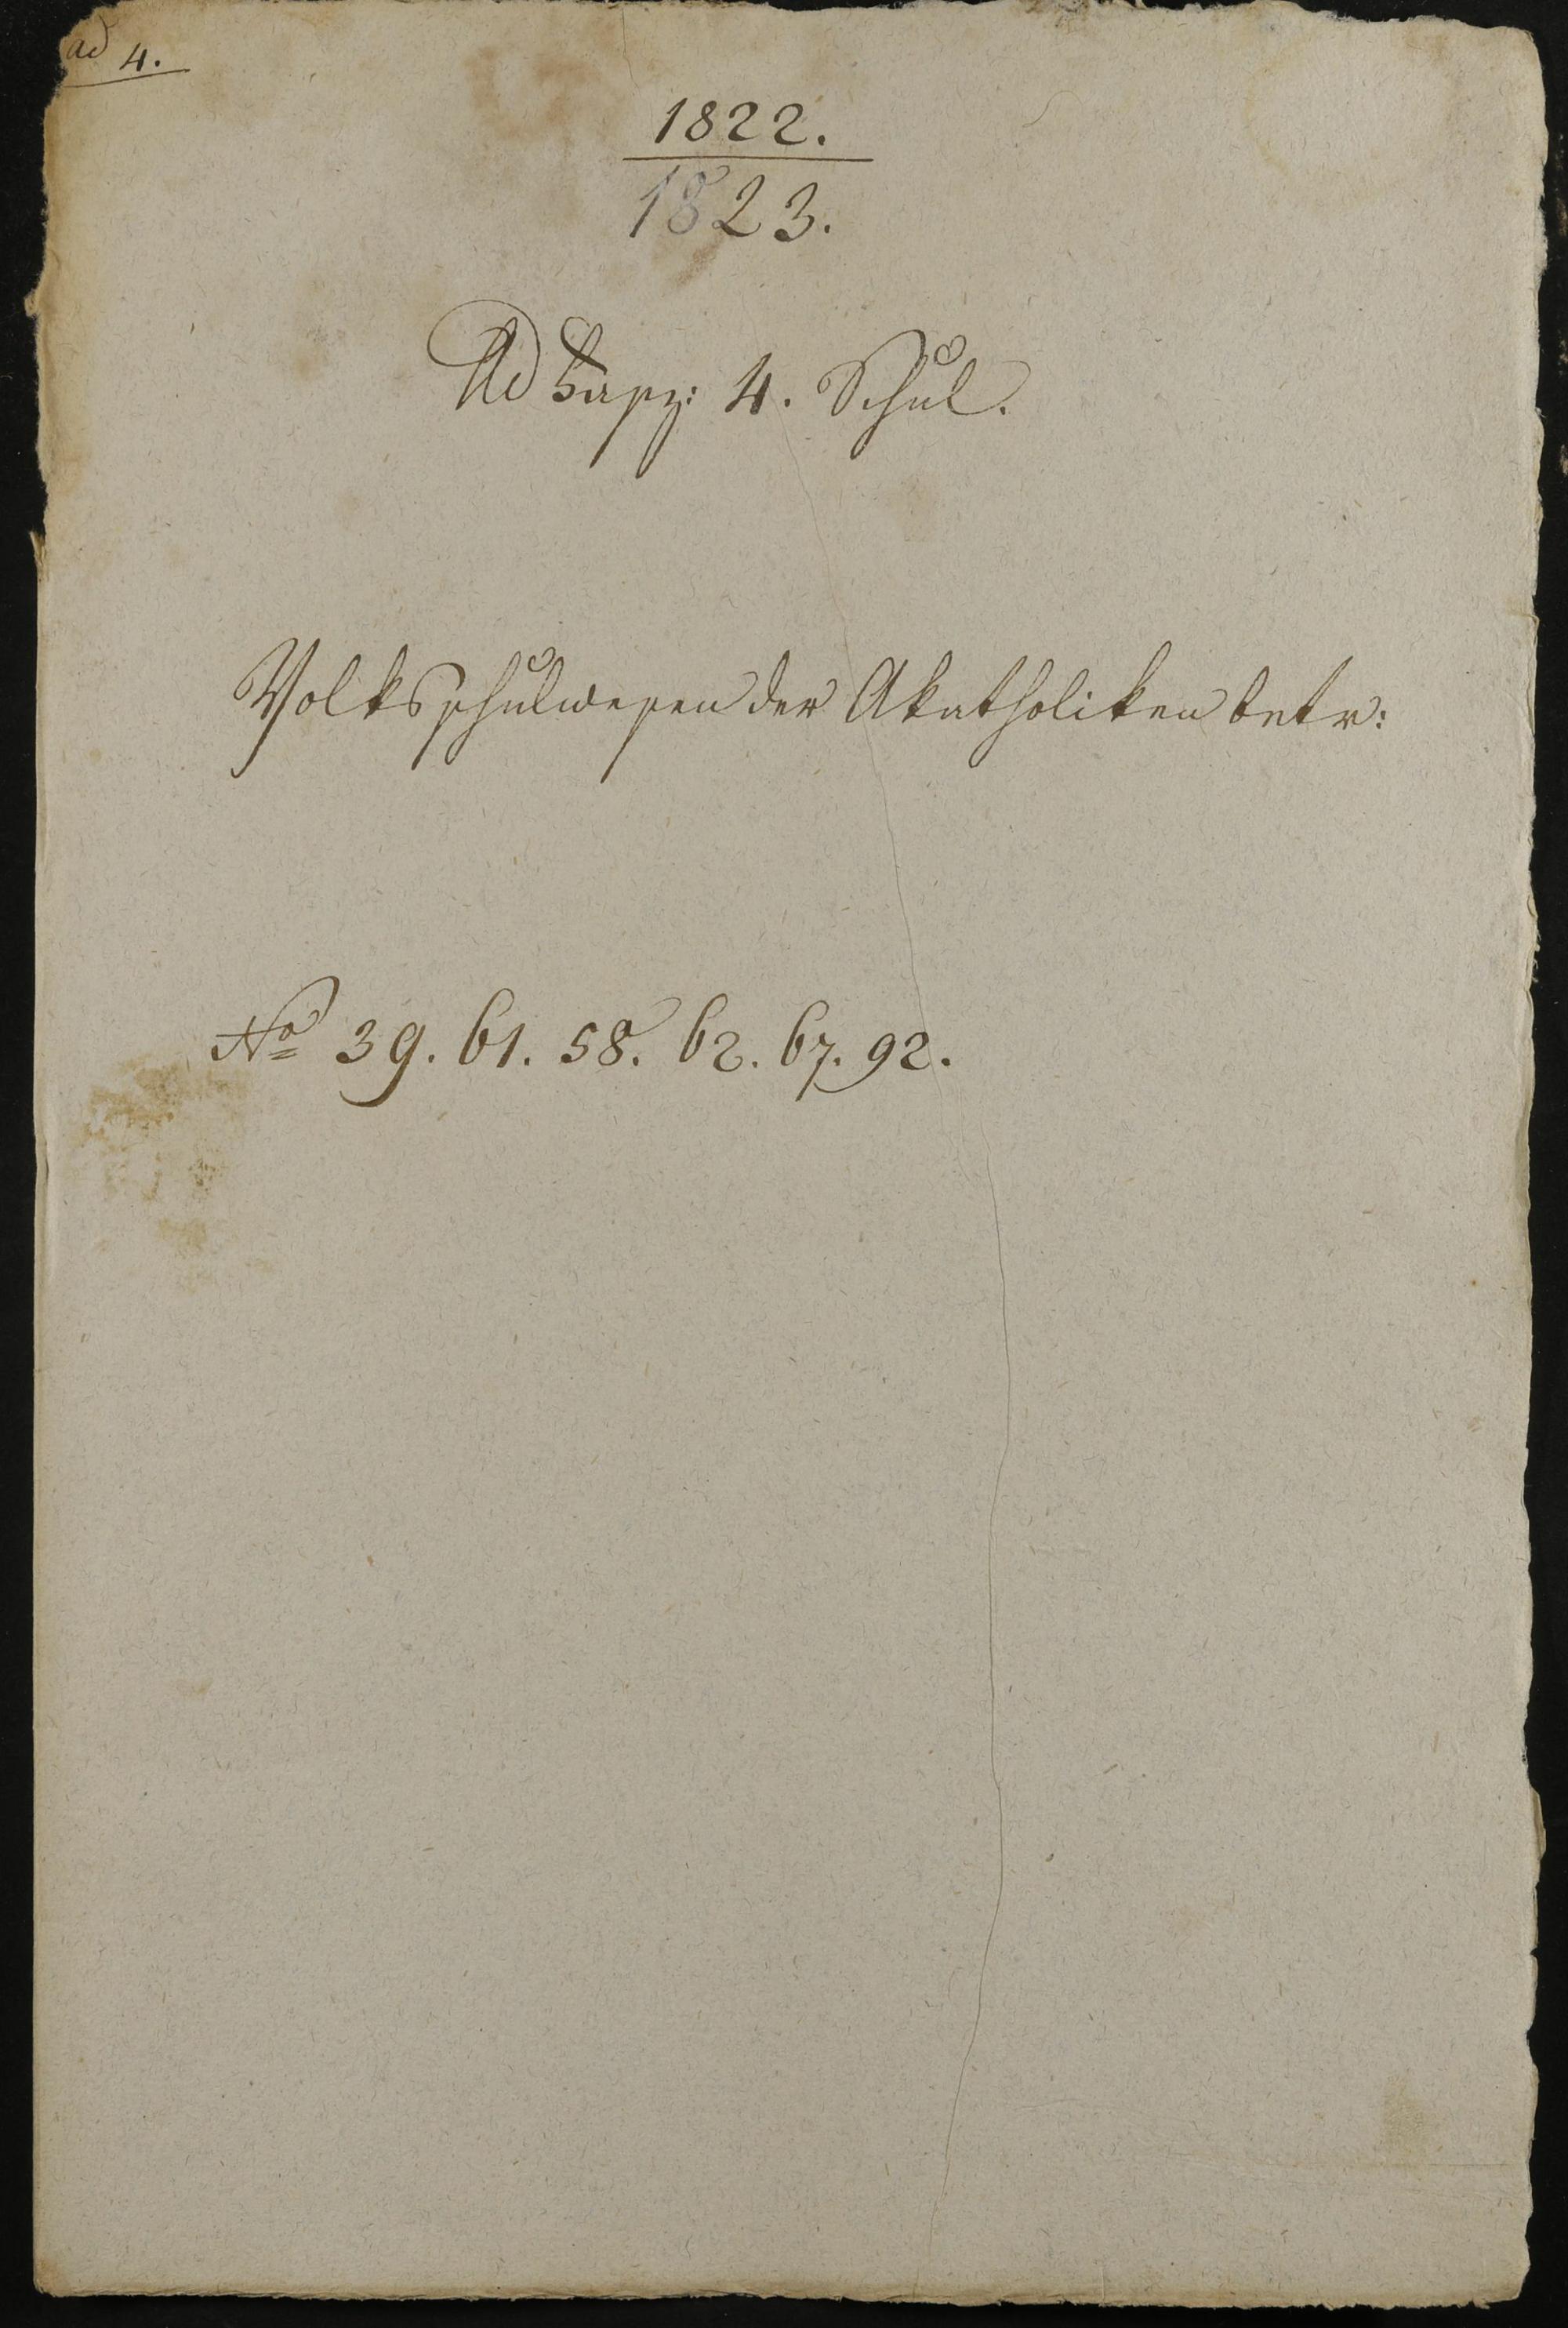 ad 4.
1822.
1823.
Ad Fasz: 4. Schul.
Volksschulwesen der Akatholiken betr:
No 39. 61. 58. 62. 67. 92.